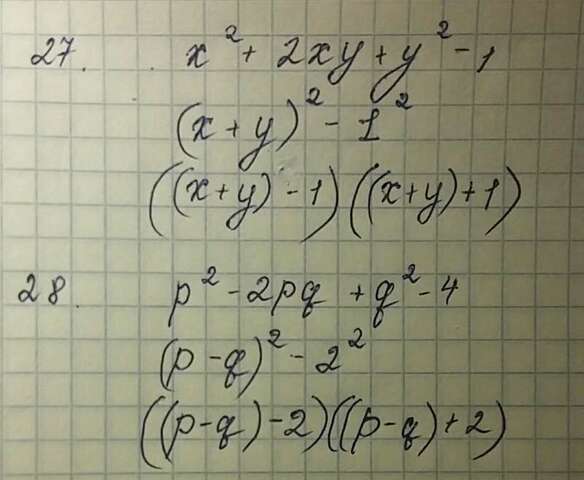 27. x² + 2xy + y² - 1
(x + y)² - 1²
((x+y) - 1) ((x+y) + 1)
28. p² - 2pq + q² - 4
(p - q)² - 2²
((p-q) - 2) ((p-q) + 2)